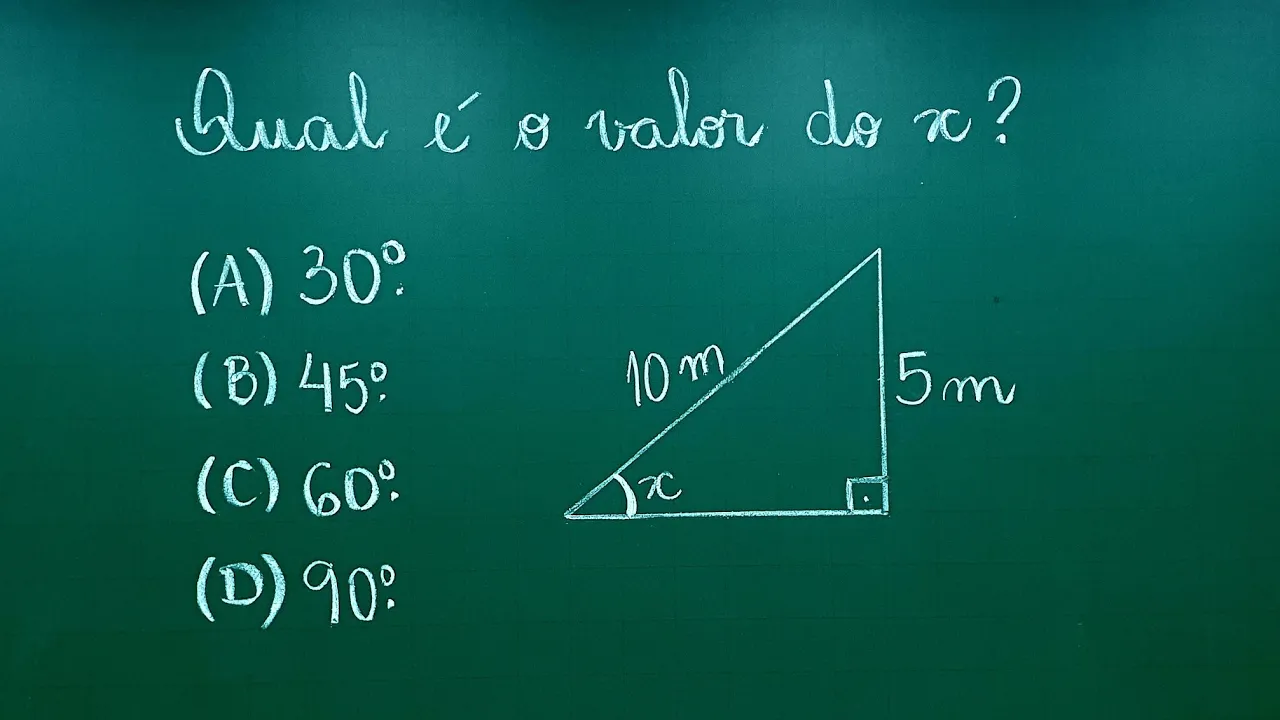 Qual é o valor do x?
(A) 30º.
(B) 45º.
(C) 60º.
(D) 90º.
10 m
5 m
x